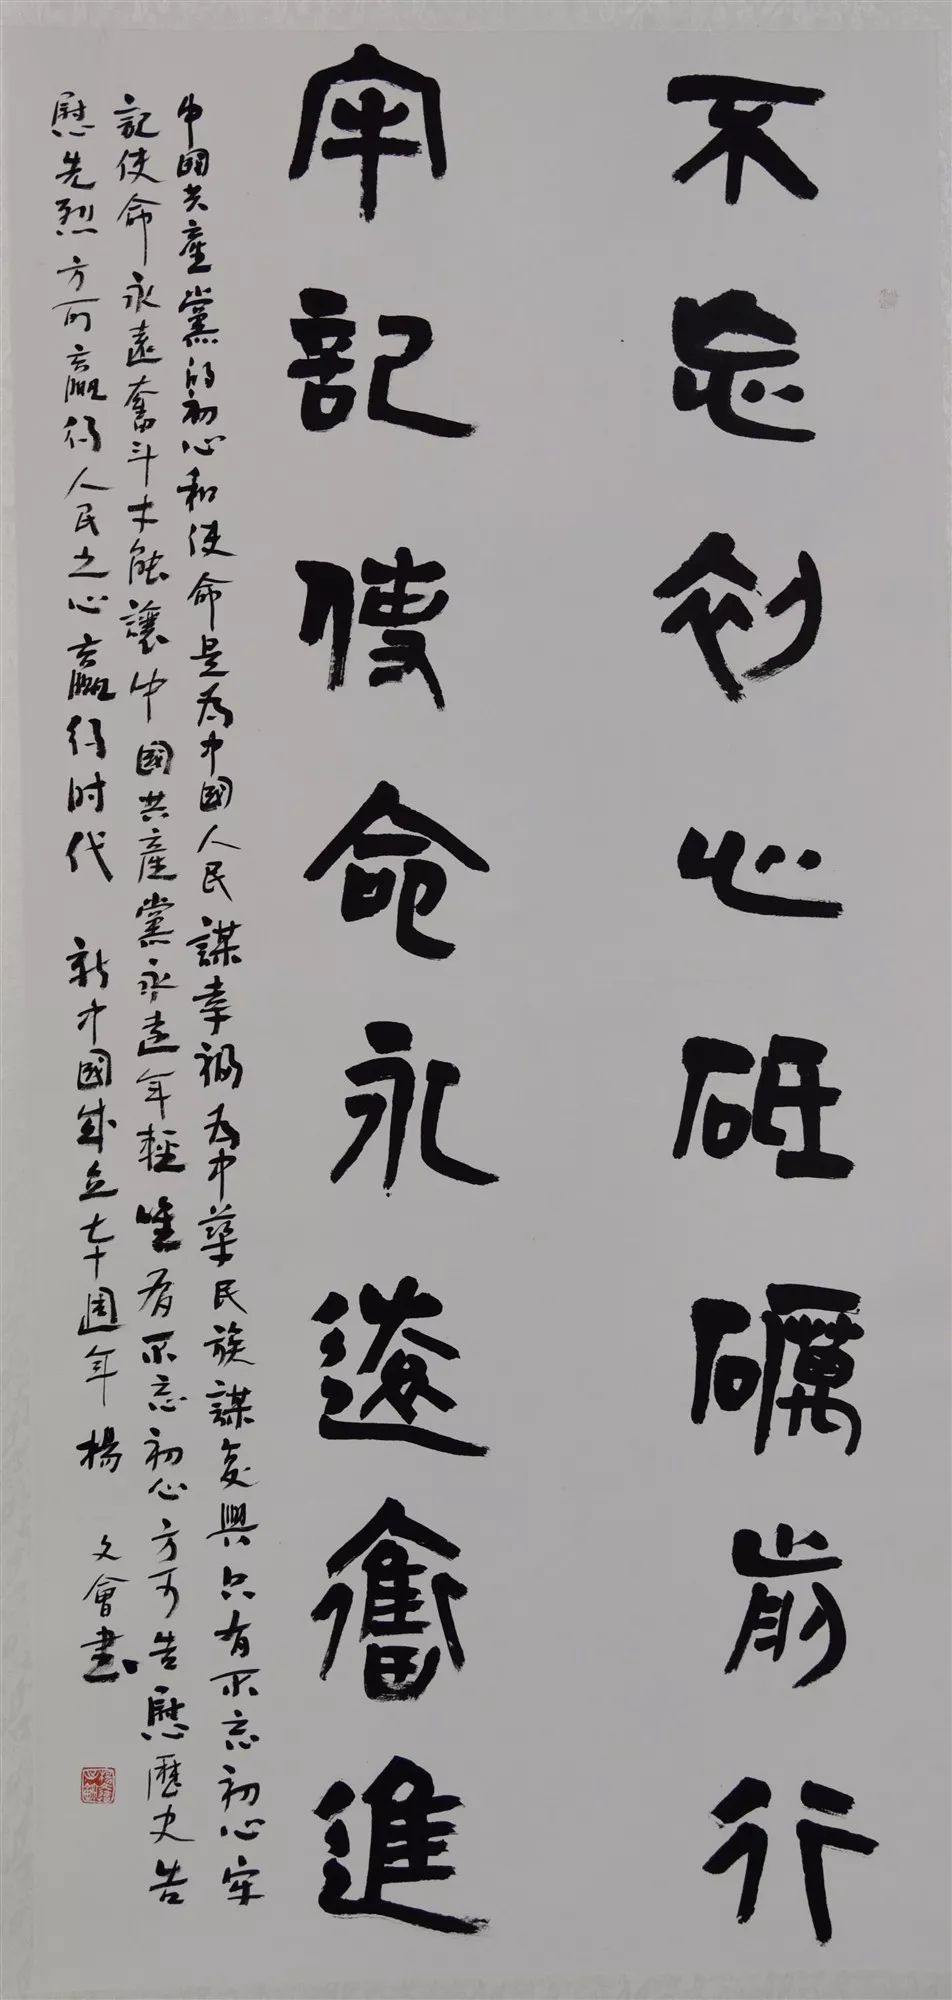 不忘初心砥礪前行
牢記使命永遠奮進
中國共產黨的初心和使命是为中國人民謀幸福为中華民族謀复興只有不忘初心牢
記使命永遠奮斗才能讓中國共產黨永遠年輕唯有不忘初心方可告慰歷史告
慰先烈方可贏得人民之心贏得时代 新中國成立七十週年楊文會書